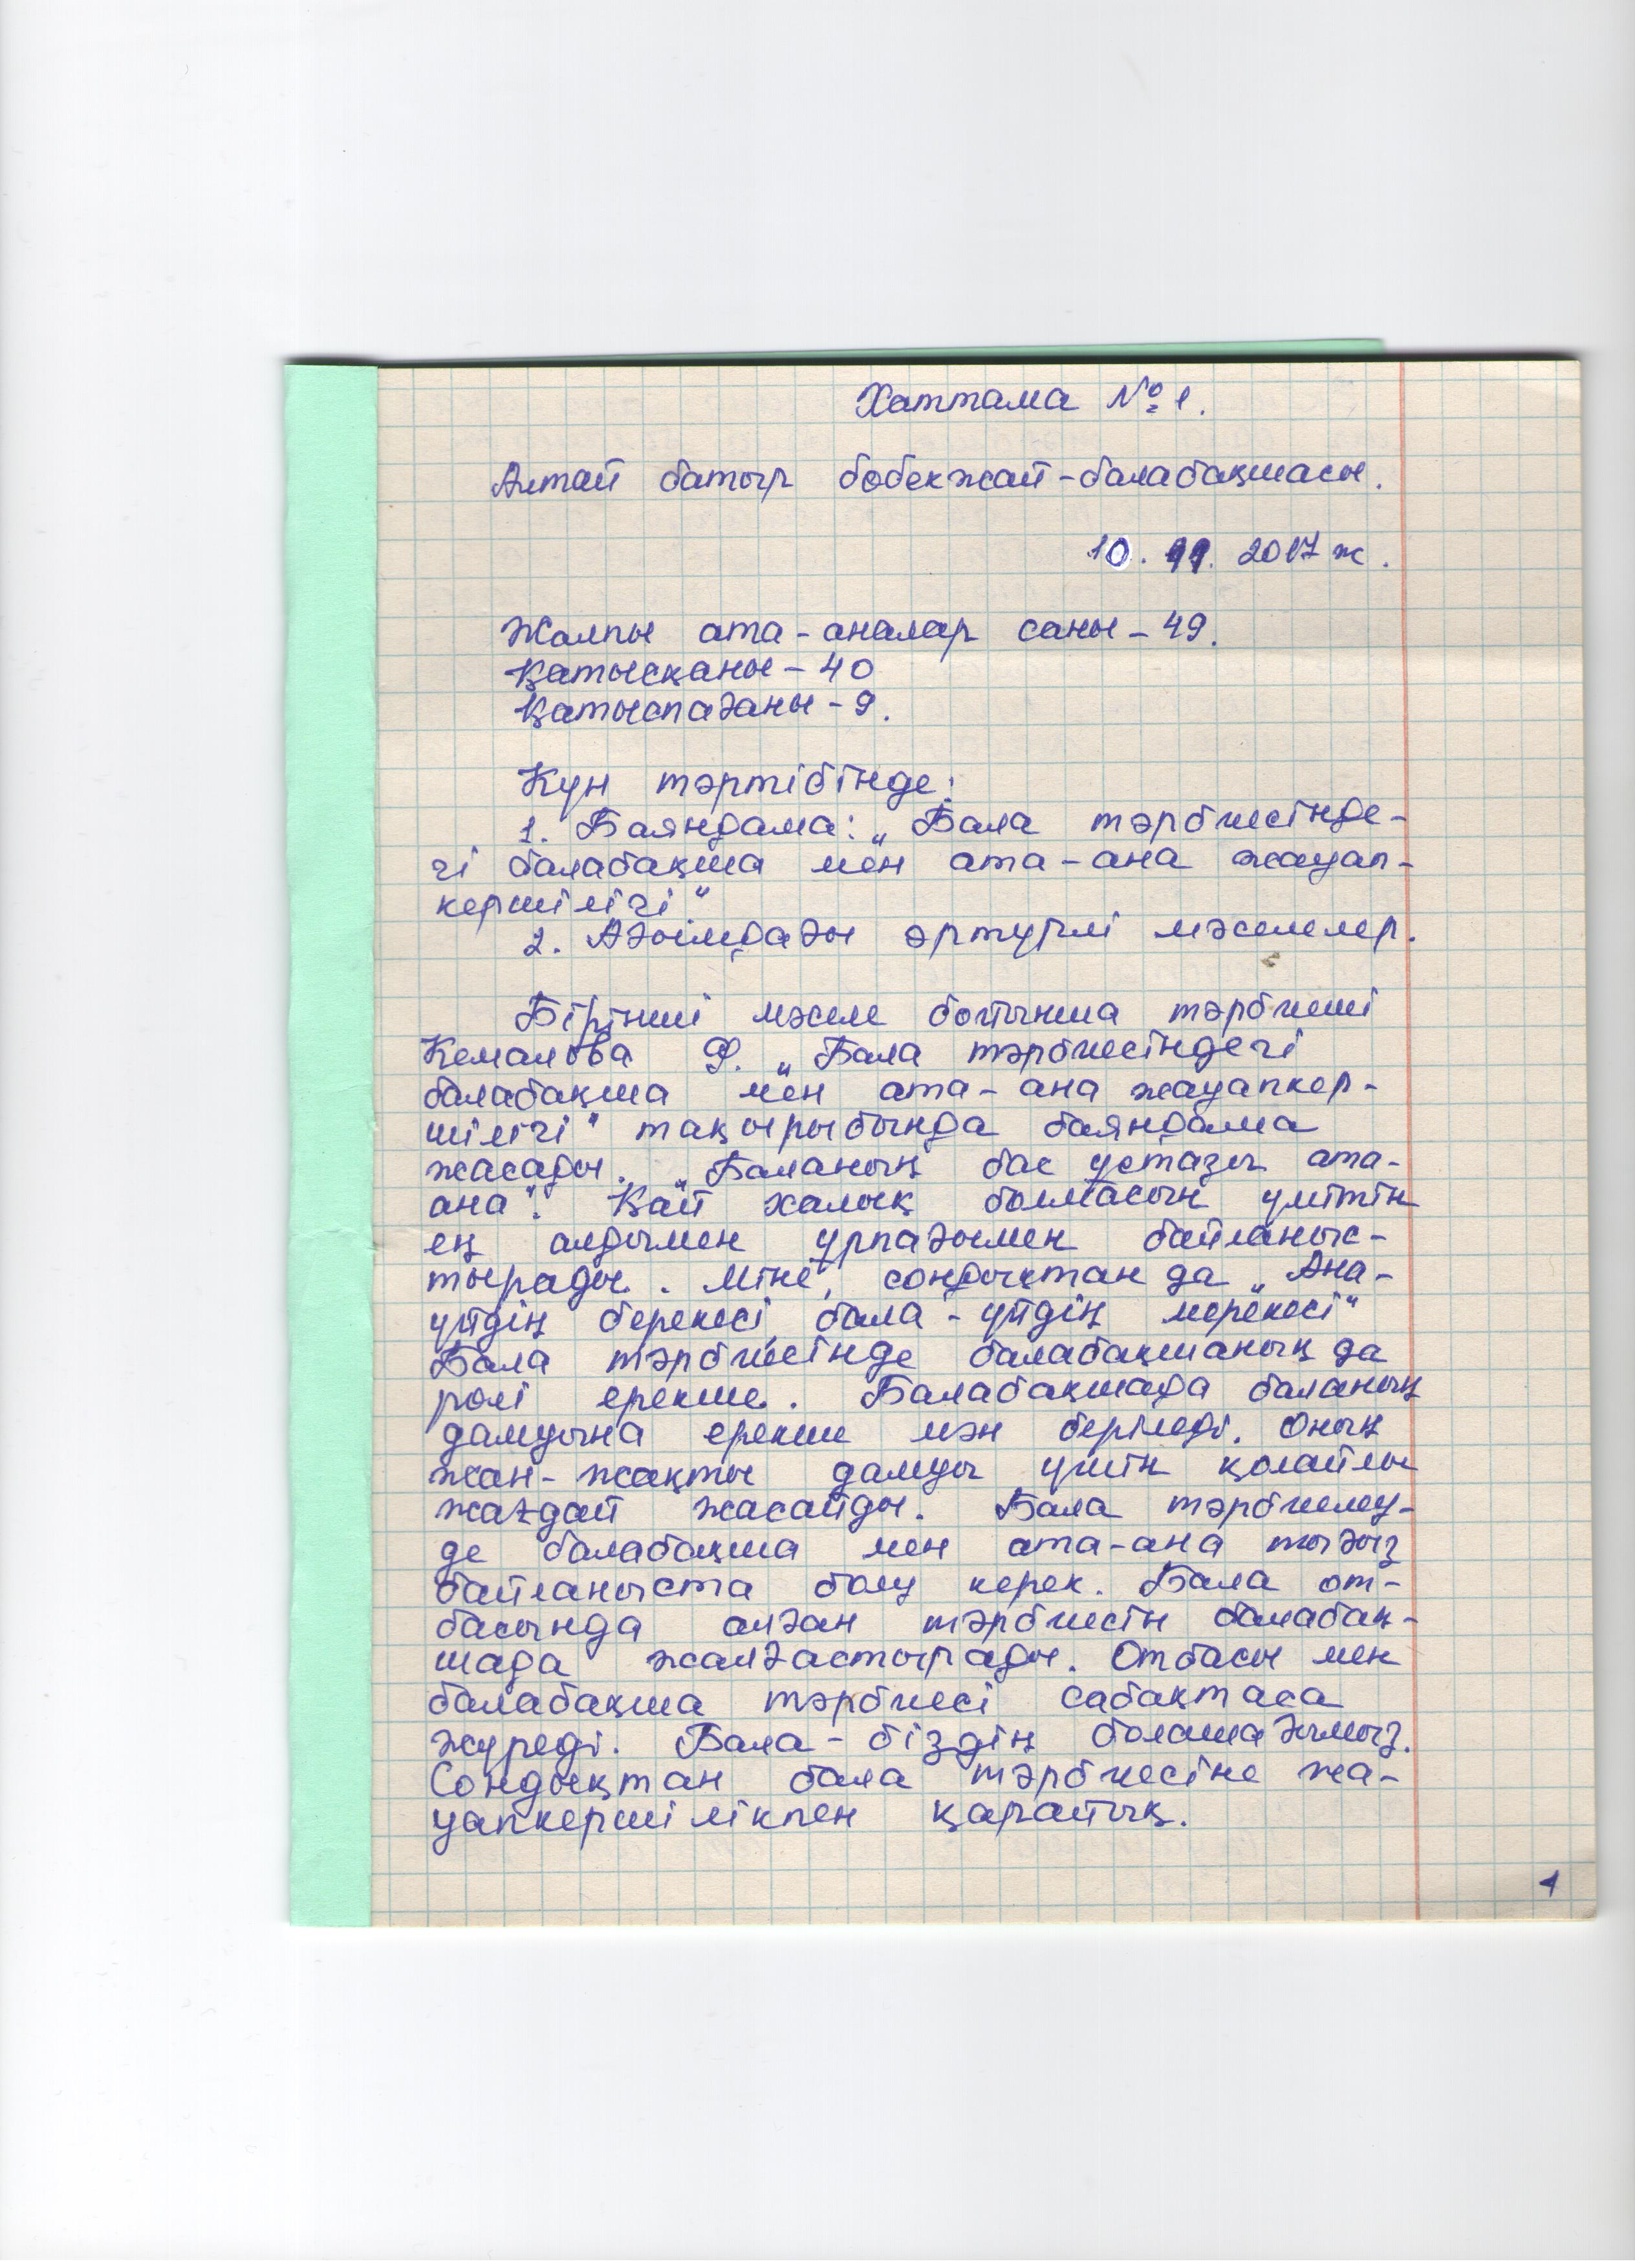 Хаттама №1.
Алтай батыр бөбекжай-балабақшасы.
10. 11. 2017 ж.
Жалпы ата-аналар саны-49.
Қатысқаны-40
Қатыспағаны-9.
Күн тәртібінде:
1. Баяндама: „Бала тәрбиесінде-
гі балабақша мен ата-ана жауап-
кершілігі."
2. Ағымдағы әртүрлі мәселелер.
Бірінші мәселе бойынша тәрбиеші
Кемалова Ф. „Бала тәрбиесіндегі
балабақша мен ата-ана жауапкер-
шілігі" тақырыбында баяндама
жасады. „Баланың бас ұстазы ата-
ана". Қай халық болмасын үмітін
ең алдымен ұрпағымен байланыс-
тырады. Міне, сондықтан да „Ана-
үйдің берекесі, бала-үйдің мерекесі"
Бала тәрбиесінде балабақшаның да
рөлі ерекше. Балабақшада баланың
дамуына ерекше мән беріледі. Оның
жан-жақты дамуы үшін қолайлы
жағдай жасайды. Бала тәрбиелеу-
де балабақша мен ата-ана тығыз
байланыста болу керек. Бала от-
басында алған тәрбиесін балабақ-
шада жалғастырады. Отбасы мен
балабақша тәрбиесі сабақтаса
жүреді. Бала-біздің болашағымыз.
Сондықтан бала тәрбиесіне жа-
уапкершілікпен қарайық.
1